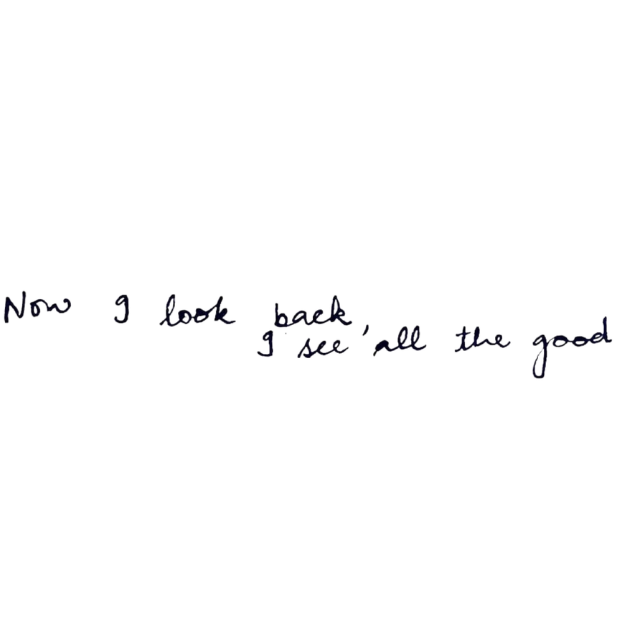 Now I look back,
I see all the good